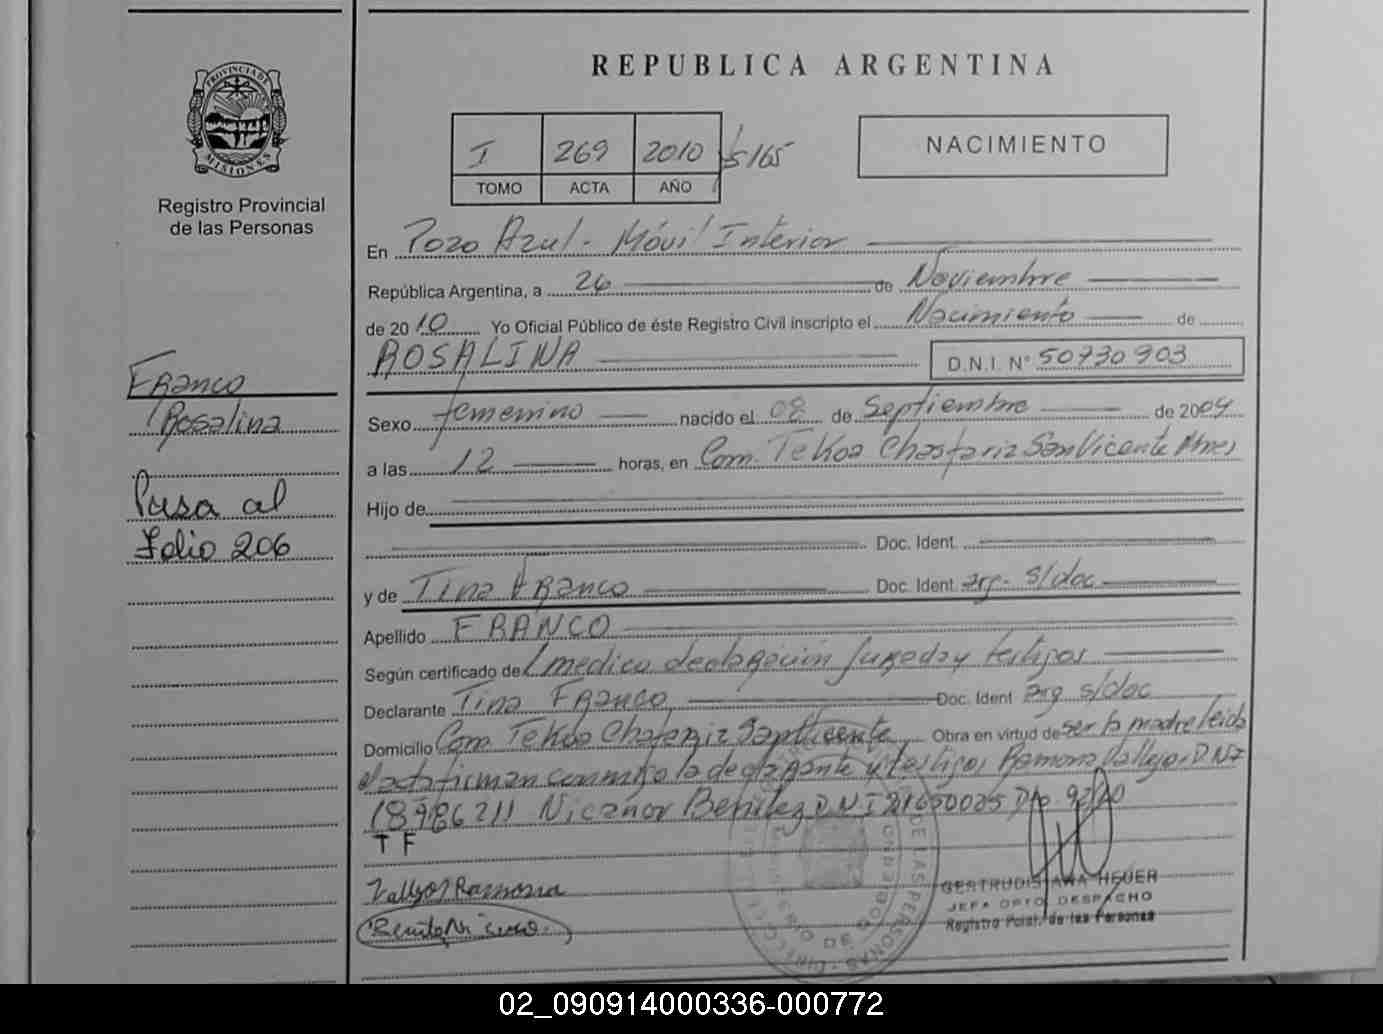 REPUBLICA ARGENTINA
PROVINCIA DE
MISIONES
Registro Provincial
de las Personas
I 269 2010 5165
TOMO ACTA AÑO
NACIMIENTO
En Pozo Azul - Móvil Interior
República Argentina, a 26 de Noviembre
de 2010 Yo Oficial Público de éste Registro Civil inscripto el Nacimiento de
ROSALINA D.N.I. Nº 50730903
Franco
Rosalina
Pasa al
Folio 206
Sexo femenino nacido el 08 de Septiembre de 2004
a las 12 horas, en Com. Tekoa Chafariz San Vicente Mnes
Hijo de
Doc. Ident.
y de Tina Franco Doc. Ident arg. s/doc
Apellido FRANCO
Según certificado de medico declaración Jurada y testigos
Declarante Tina Franco Doc. Ident arg s/doc
Domicilio Com. Tekoa Chafariz San Vicente Obra en virtud de ser la madre leida
el acta firman conmigo la declarante y testigos Ramona Vallejos DNI
18986211 Nicanor Benitez D.N.I 21650025 Dto. 92/20
T F
Vallejos Ramona
GERTRUDIS ANA HEUER
JEFA DPTO DESPACHO
Registro Pcial. de las Personas
02_090914000336-000772